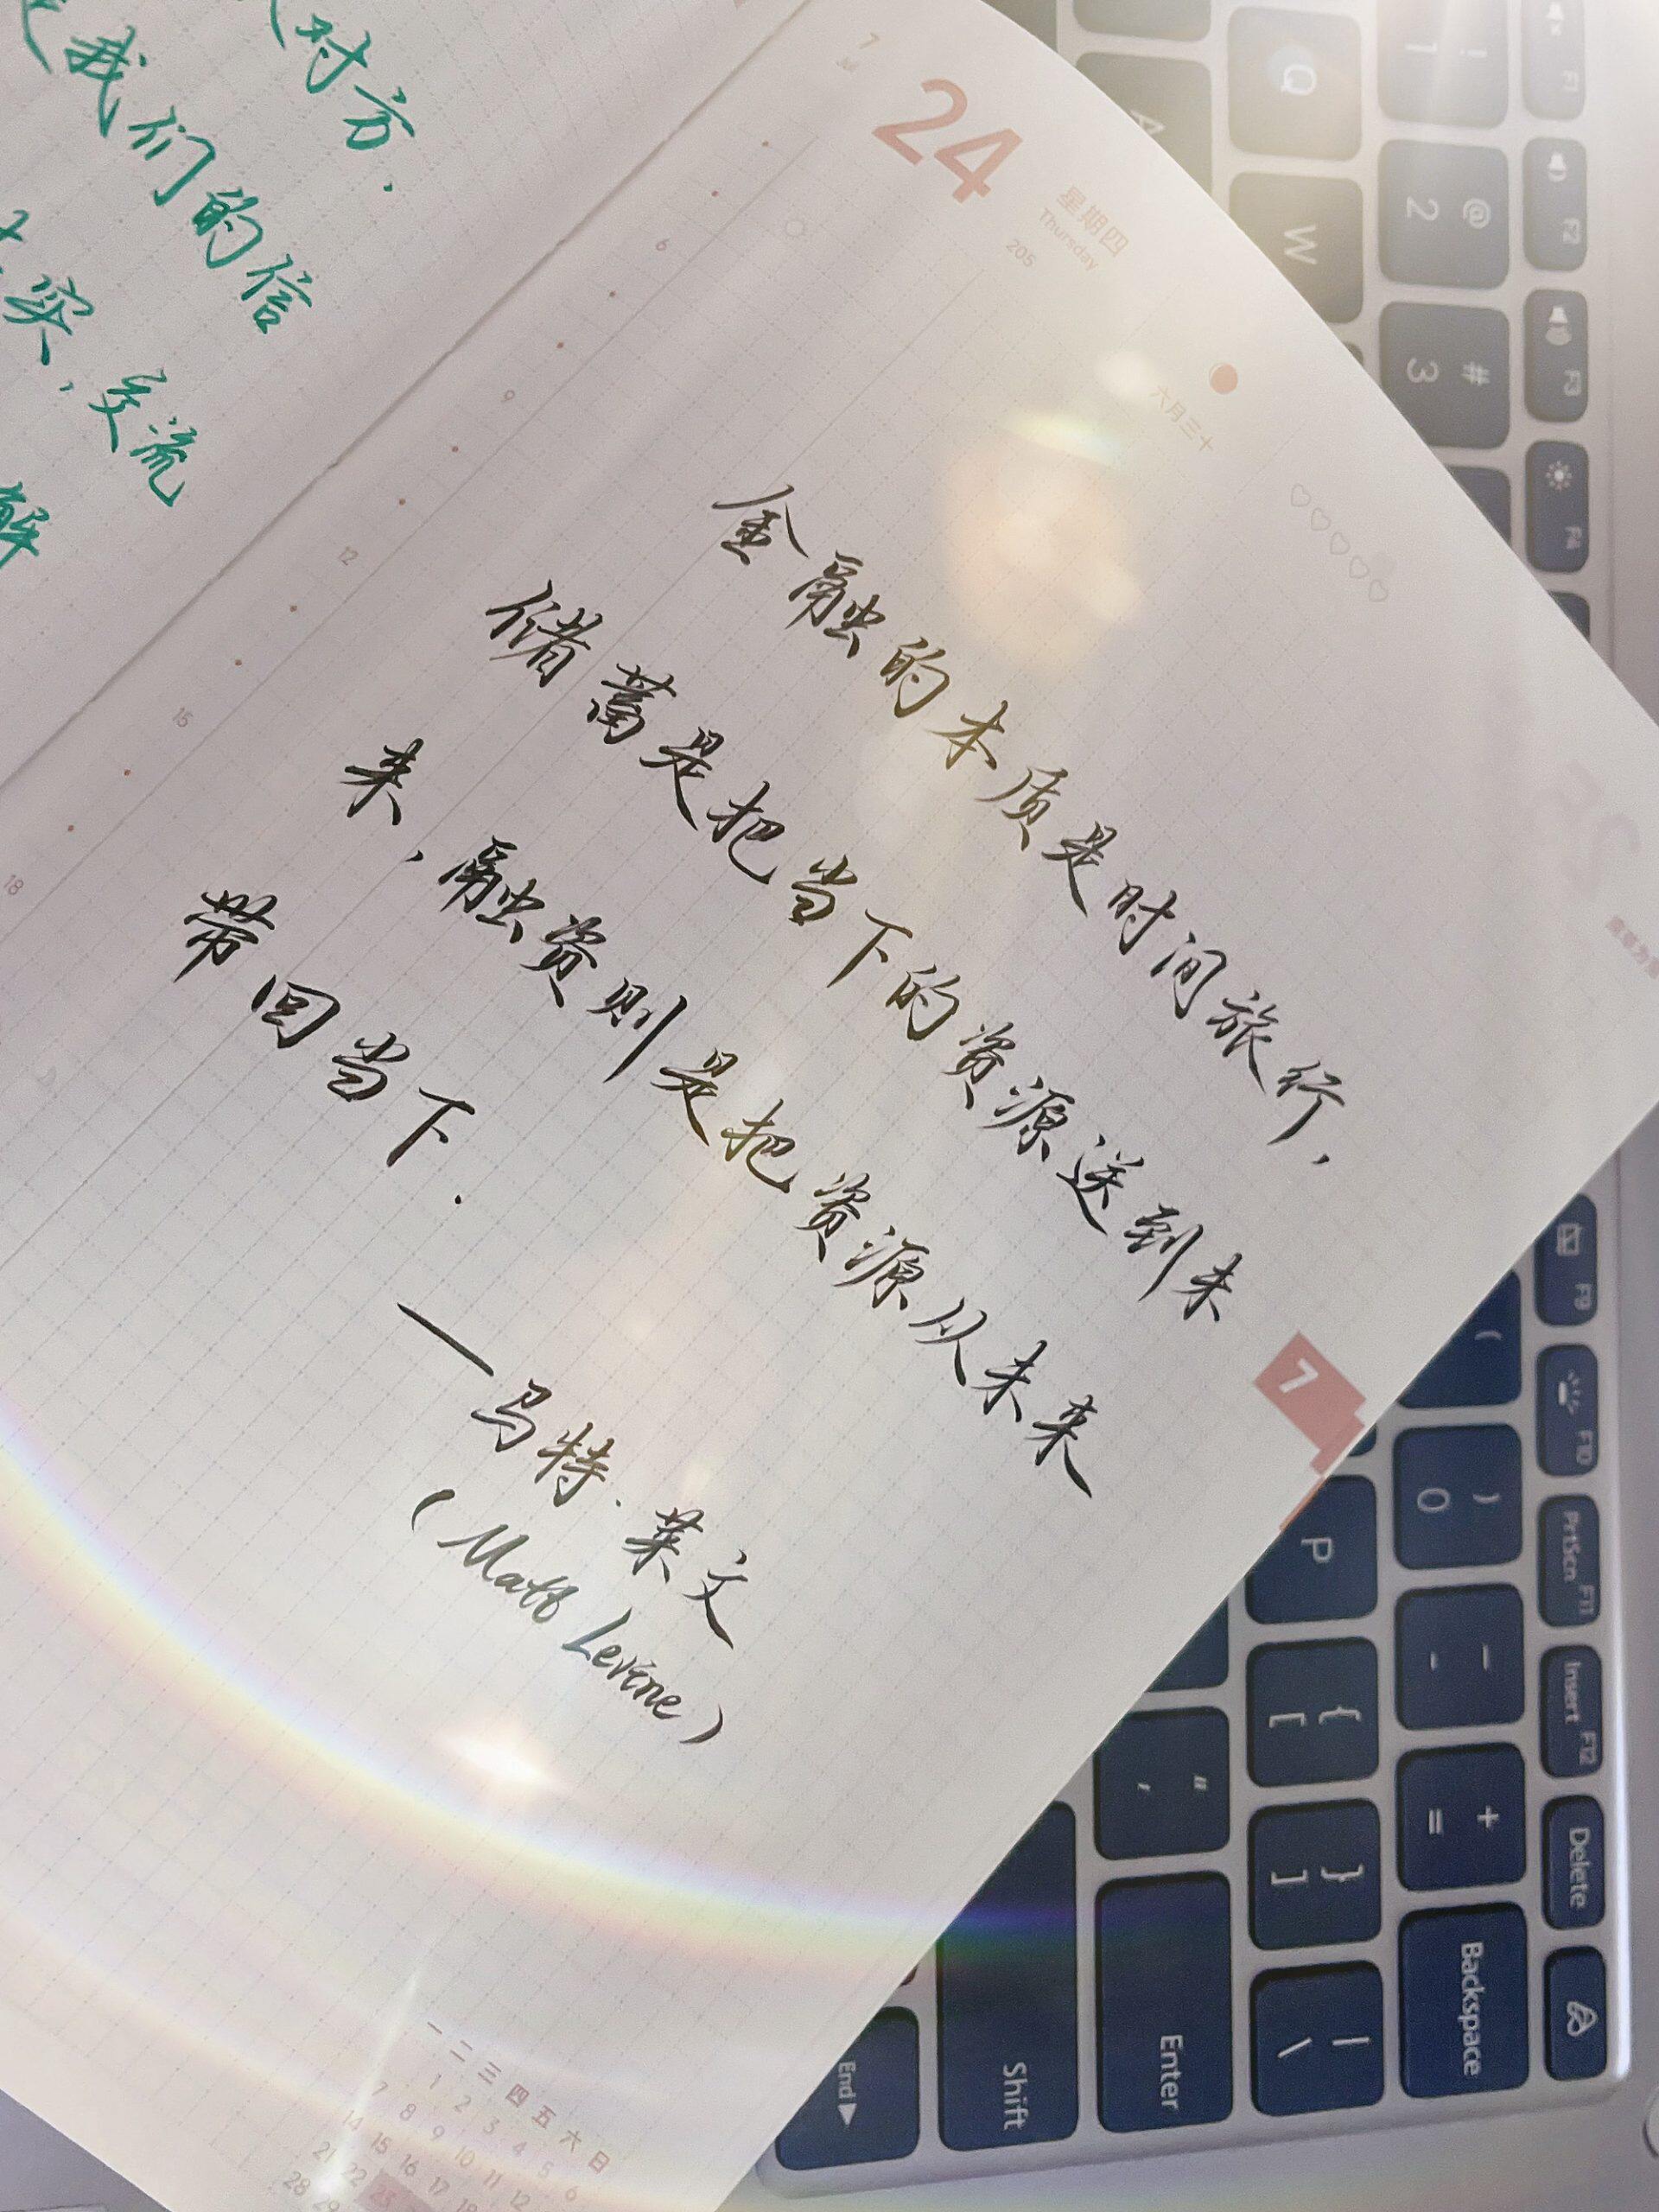 对方.
我们的信
实,交流
解
7
24
星期四
Thursday
205
六月三十
6
9
12
15
18
金融的本质是时间旅行,
储蓄是把当下的资源送到未
来,融资则是把资源从未来
带回当下.
—马特·莱文
(Matt Levine)
7
一 二 三 四 五 六 日
1 2 3 4 5 6
7 8 9 10 11 12
14 15 16 17 18
21 22 23
28 29
F1
F2
F3
F4
F9
F10
PrtScn F11
Insert F12
Delete
! 1
@ 2
# 3
(
) 0
_ -
+ =
Backspace
Q
W
P
{ [
} ]
| \
A
" '
Enter
Shift
End